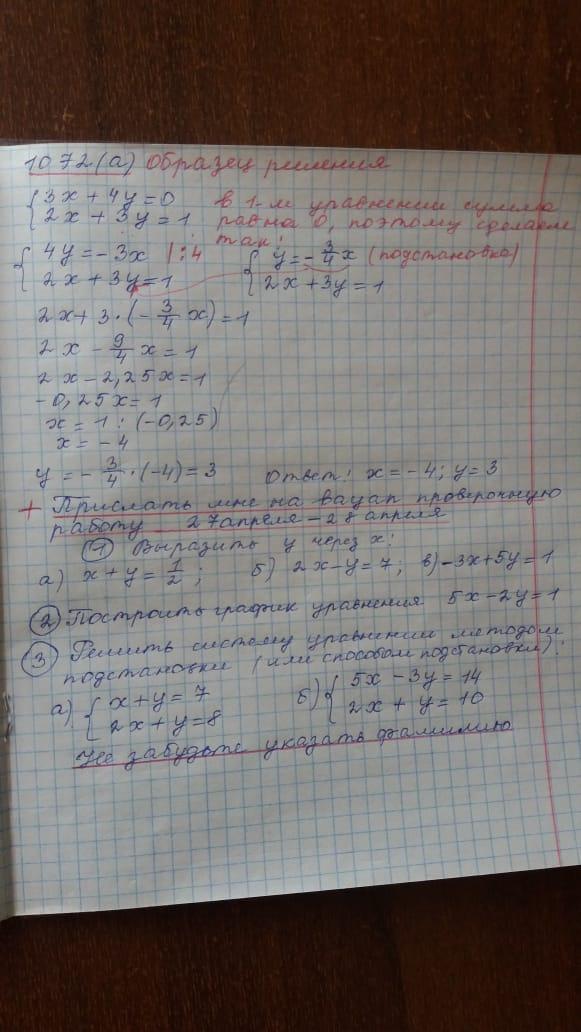 1072(а) Образец решения
{3x + 4y = 0 В 1-м уравнении сумма
{2x + 3y = 1 равна 0, поэтому сделаем
так:
{4y = -3x |:4 {y = -3/4x (подстановка)
{2x + 3y = 1 {2x + 3y = 1
2x + 3·(-3/4 x) = 1
2x - 9/4 x = 1
2x - 2,25x = 1
-0,25x = 1
x = 1 : (-0,25)
x = -4
y = -3/4·(-4) = 3 Ответ: x = -4; y = 3
+ Прислать мне на вацап проверочную
работу 27 апреля - 28 апреля
① Выразить y через x:
а) x + y = 1/2; б) 2x - y = 7; в) -3x + 5y = 1
② Построить график уравнения 5x - 2y = 1
③ Решить систему уравнений методом
подстановки (или способом подстановки):
а) {x + y = 7 б) {5x - 3y = 14
{2x + y = 8 {2x + y = 10
Не забудьте указать фамилию